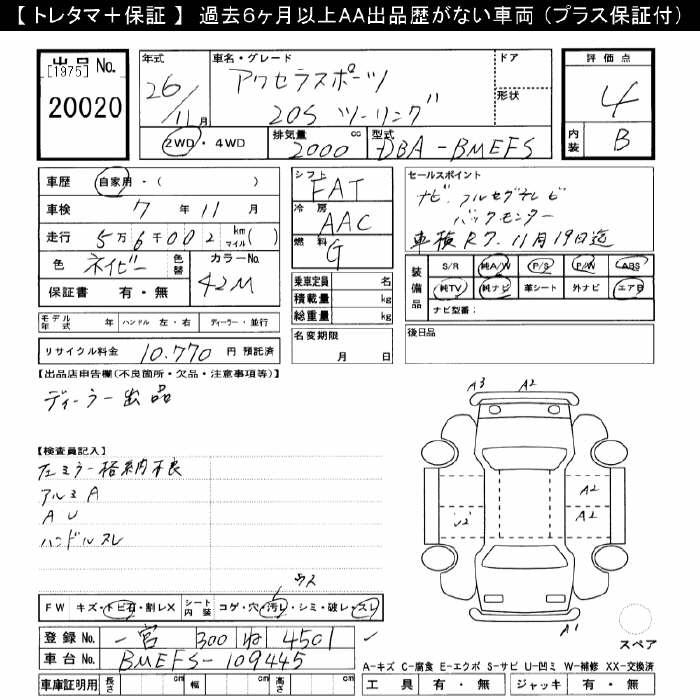 【 トレタマ＋保証 】 過去６ヶ月以上ＡＡ出品歴がない車両（プラス保証付）
出品 No.
[1975]
20020
年式
26/11月
車名・グレード
アクセラスポーツ
20S ツーリング
ドア
形状
2WD・4WD
排気量 2000 cc
型式 DBA-BMEFS
評価点
4
内装 B
車歴 自家用・( )
車検 7年 11月
走行 5万6千002 km マイル( )
色 ネイビー 色替
カラーNo. 42M
保証書 有・無
モデル年式 年 ハンドル 左・右 ディーラー・並行
リサイクル料金 10.770 円 預託済
シフト FAT
冷房 AAC
燃料 G
乗車定員 名
積載量 kg
総重量 kg
名変期限
月 日
セールスポイント
ナビ. フルセグテレビ
バックモンター
車検R7.11月19日迄
装備品
S/R 純A/W P/S P/W ABS
純TV 純ナビ 革シート 外ナビ エアB
ナビ型番：
後日品
【出品店申告欄(不良箇所・欠品・注意事項等)】
ディーラー出品
【検査員記入】
左ミラー格納不良
アルミA
AU
ハンドルスレ
ウス
FW キズ・トビ石・割レX
シート内装 コゲ・穴・汚レ・シミ・破レ・スレ
登録No. 一宮 300 ね 4501
車台No. BMEFS-109445
車庫証明用 長さ cm 幅 cm 高さ cm
A3 A2
A2
A2
U2
A1
スペア
A-キズ C-腐食 E-エクボ S-サビ U-凹ミ W-補修 XX-交換済
工具 有・無 ジャッキ 有・無